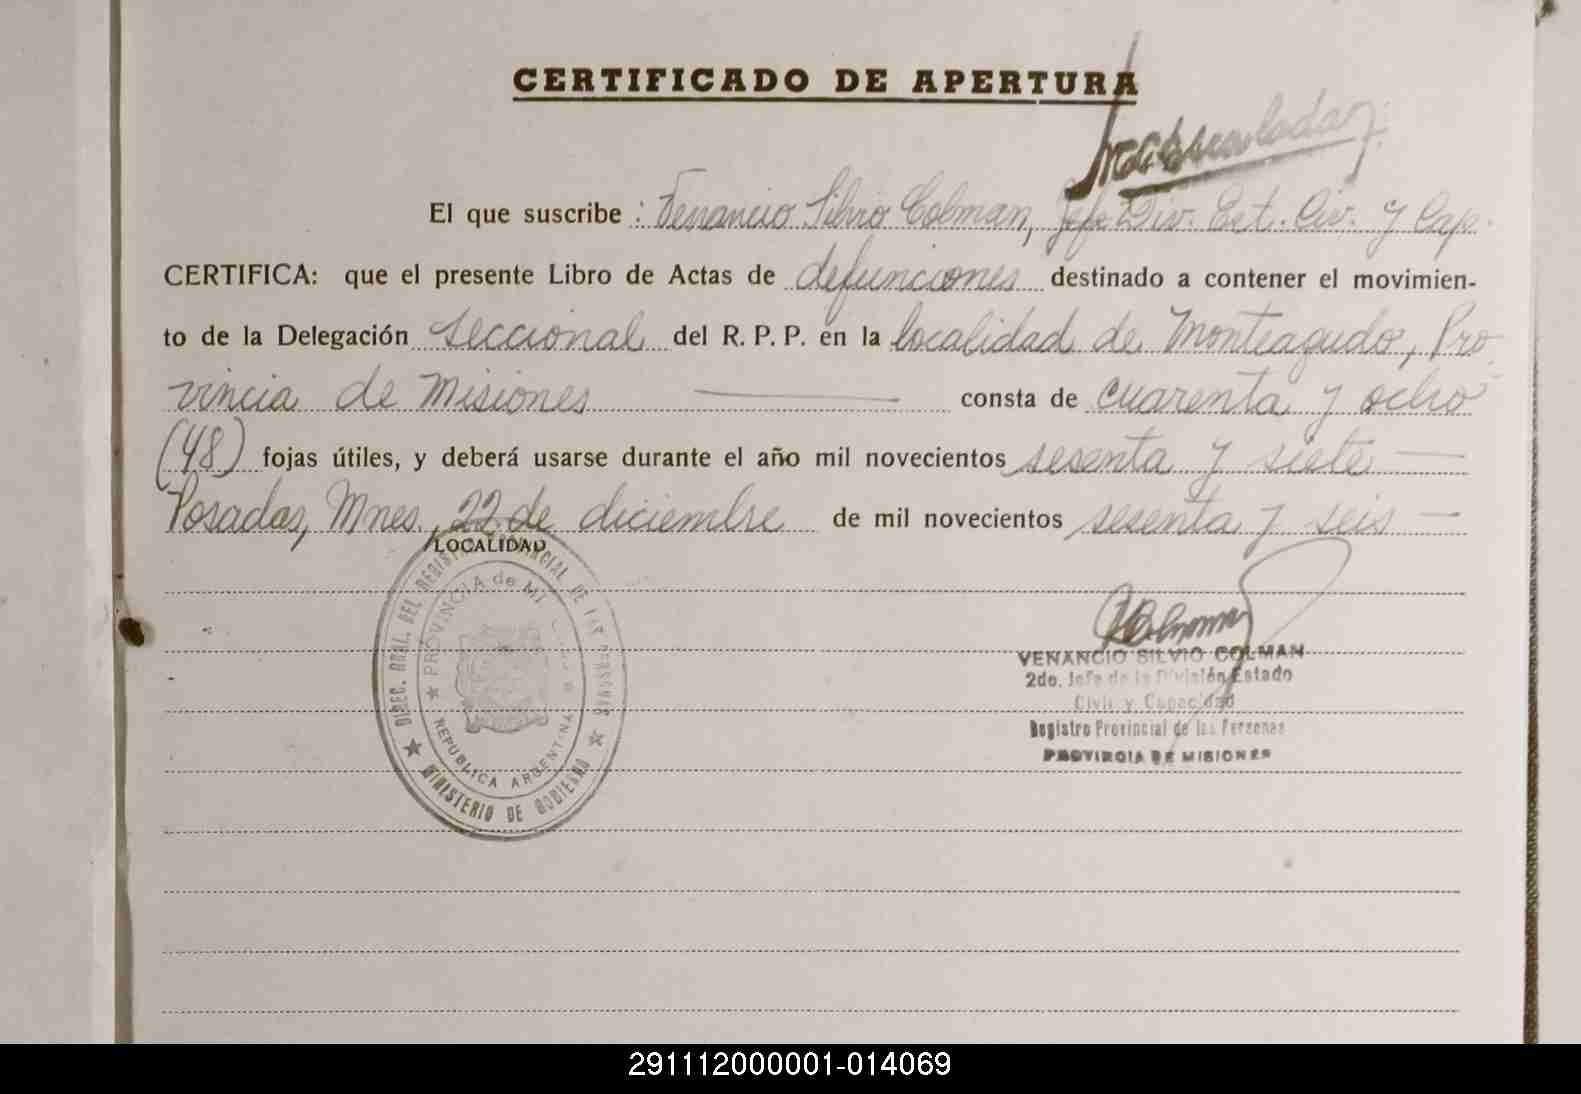 CERTIFICADO DE APERTURA
El que suscribe : Venancio Silvio Colman, Jefe Div. Est. Civ. y Cap.
CERTIFICA: que el presente Libro de Actas de defunciones destinado a contener el movimien-
to de la Delegación Seccional del R. P. P. en la localidad de Monteagudo, Pro
vincia de Misiones consta de cuarenta y ocho
(48) fojas útiles, y deberá usarse durante el año mil novecientos sesenta y siete
Posadas, Mnes., 22 de diciembre de mil novecientos sesenta y seis
LOCALIDAD
DIREC. GRAL. DEL REGISTRO PROVINCIAL DE LAS PERSONAS
PROVINCIA de MI
REPUBLICA ARGENTINA
MINISTERIO DE GOBIERNO
VENANCIO SILVIO COLMAN
2do. Jefe de la División Estado
Civil y Capacidad
Registro Provincial de las Personas
PROVINCIA DE MISIONES
291112000001-014069